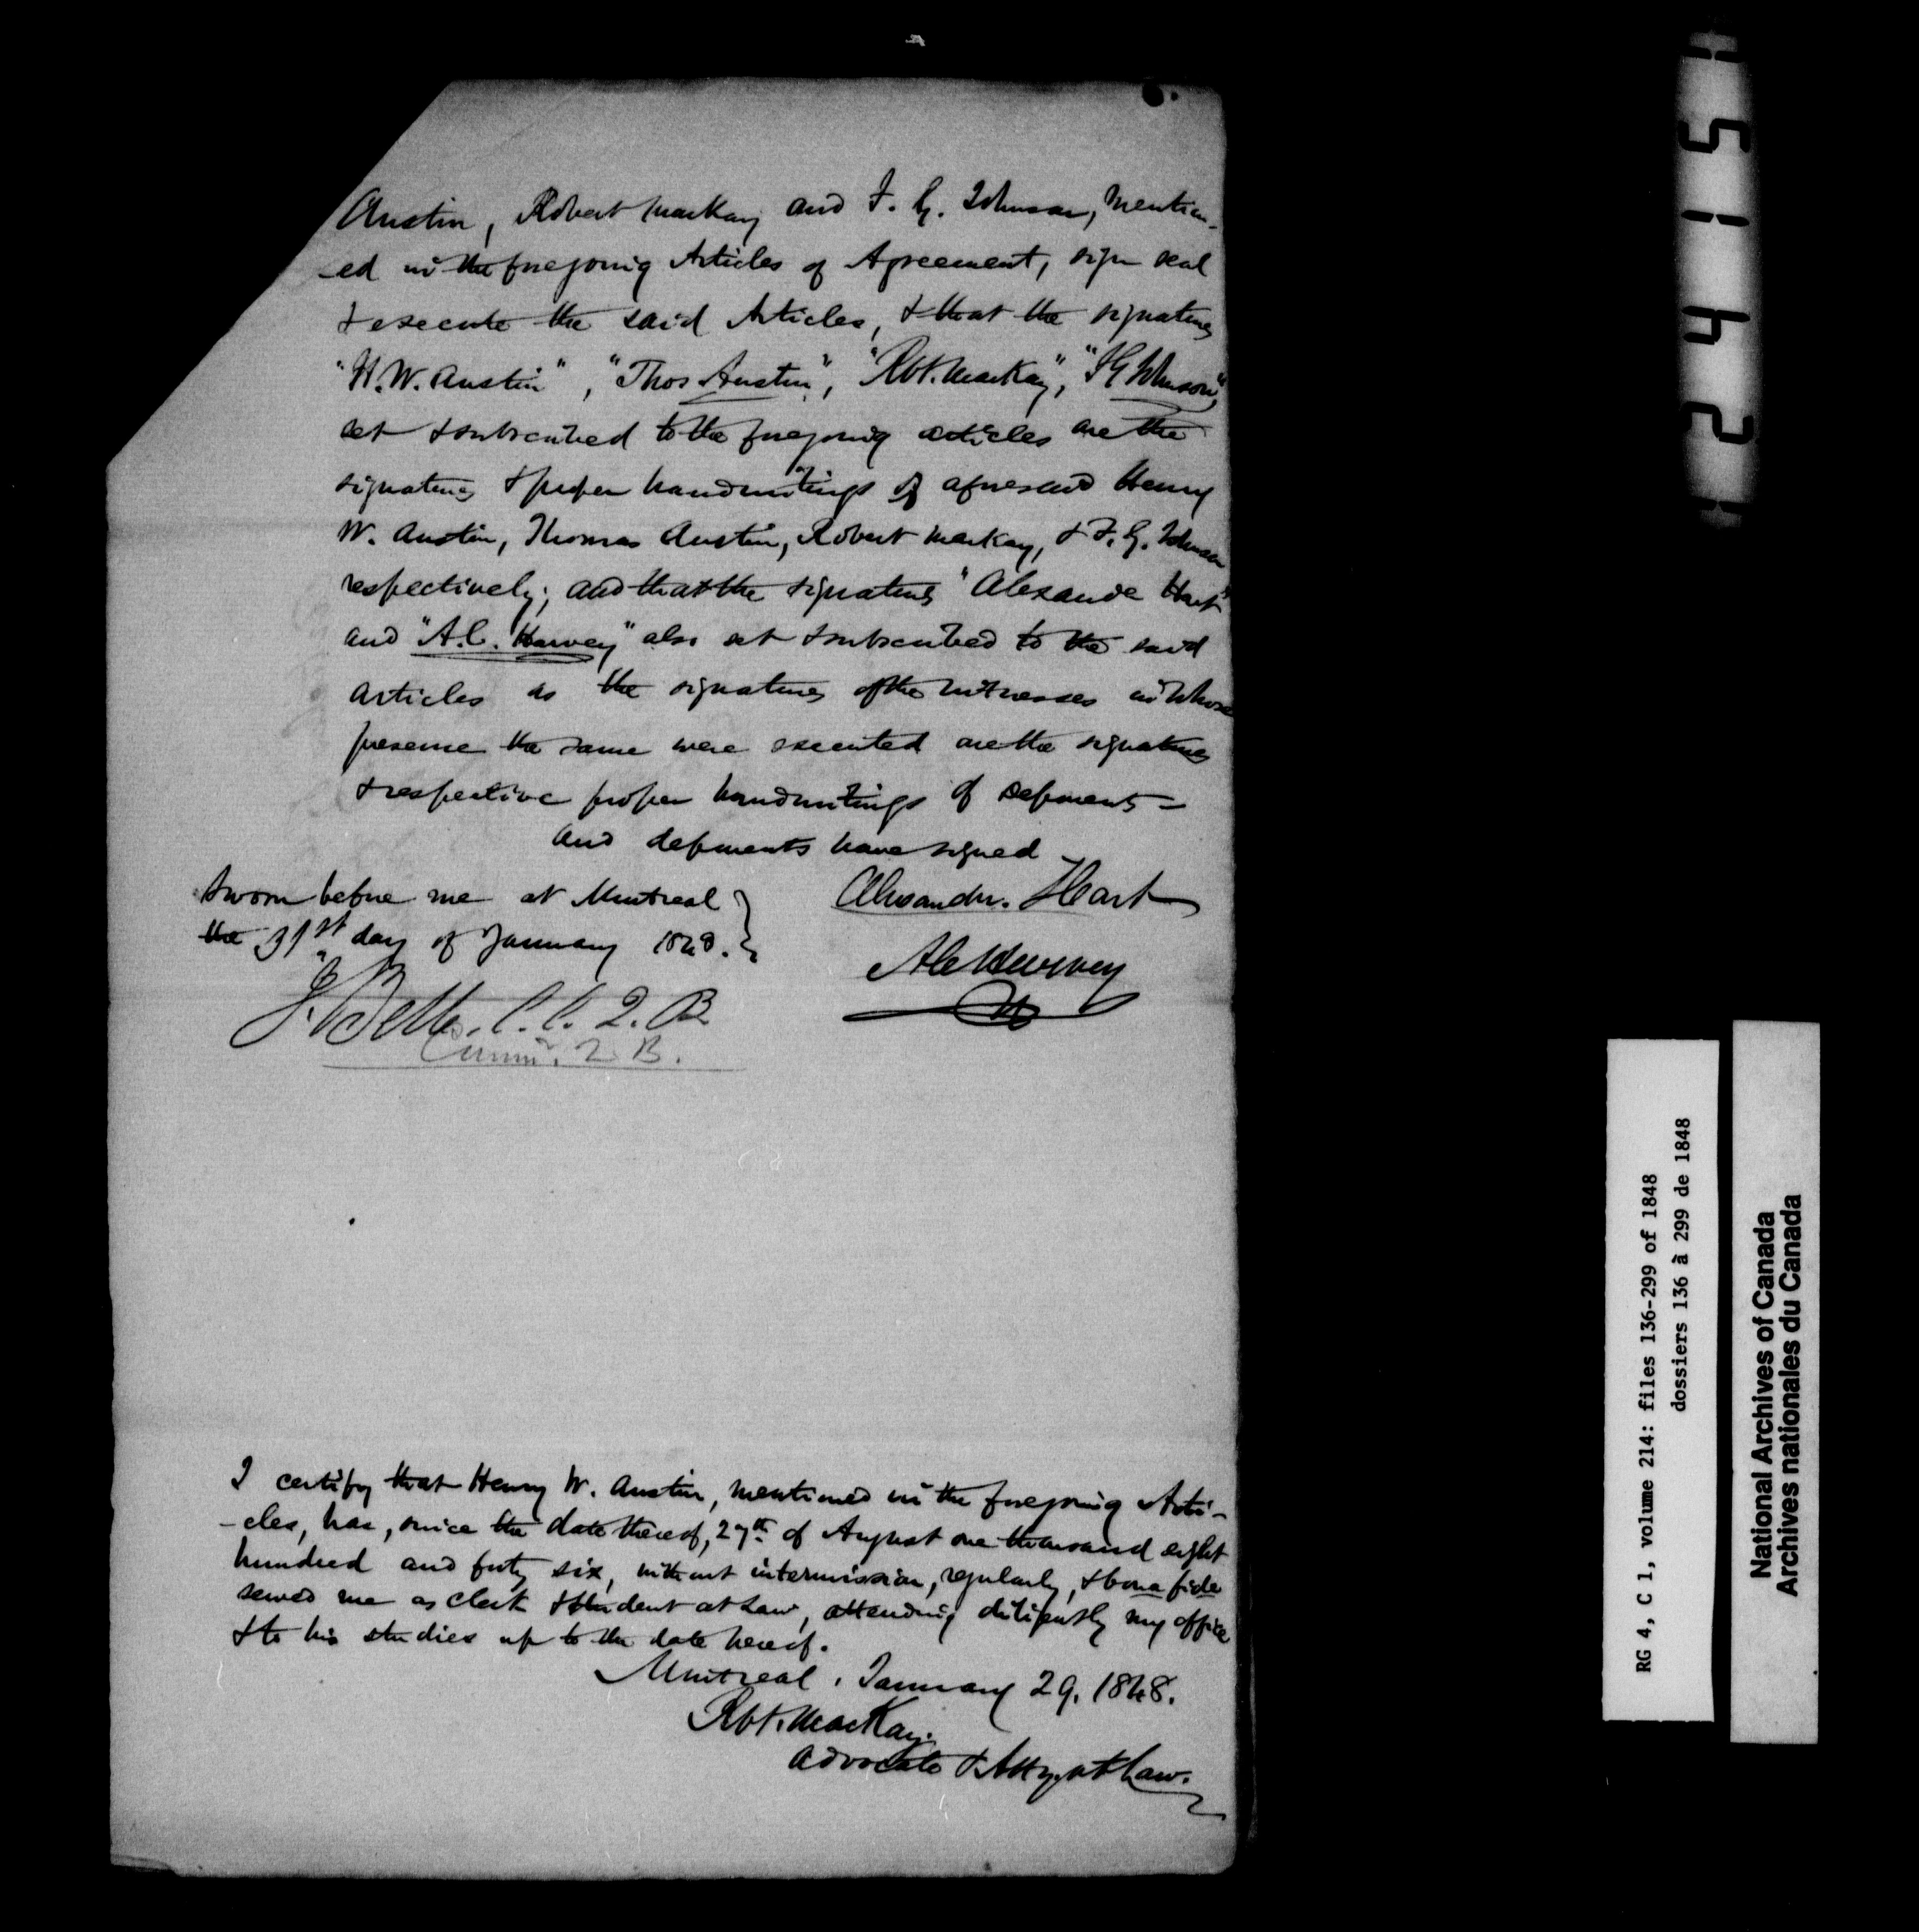 Austin, Robert MacKay and F. G. Johnson, mention-
-ed in the foregoing Articles of Agreement, sign seal
& execute the said Articles, & that the signatures
"H. W. Austin", "Thos Austin", "Rbt. MacKay", "F G Johnson",
set & subscribed to the foregoing articles are the
signatures & proper handwritings of aforesaid Henry
W. Austin, Thomas Austin, Robert MacKay, & F. G. Johnson
respectively; and that the signatures "Alexander Hart"
and "A. C. Harvey" also set & subscribed to the said
articles as the signatures of the witnesses in whose
presence the same were executed are the signatures
& respective proper handwritings of deponents =
and deponents have signed
Sworn before me at Montreal
the 31st day of January 1848.
Alexander. Hart
A C Harvey
C. C. Q. B
Q. B.
I certify that Henry W. Austin, mentioned in the foregoing Arti-
-cles, has, since the date thereof, 27th of August one thousand eight
hundred and forty six, without intermission, regularly, & bona fide
served me as clerk & student at Law, attending diligently my office
& to his studies up to the date hereof.
Montreal, January 29. 1848.
Rbt. MacKay.
Advocate & Atty. at Law.
5142
RG 4, C 1, volume 214: files 136-299 of 1848
dossiers 136 à 299 de 1848
National Archives of Canada
Archives nationales du Canada